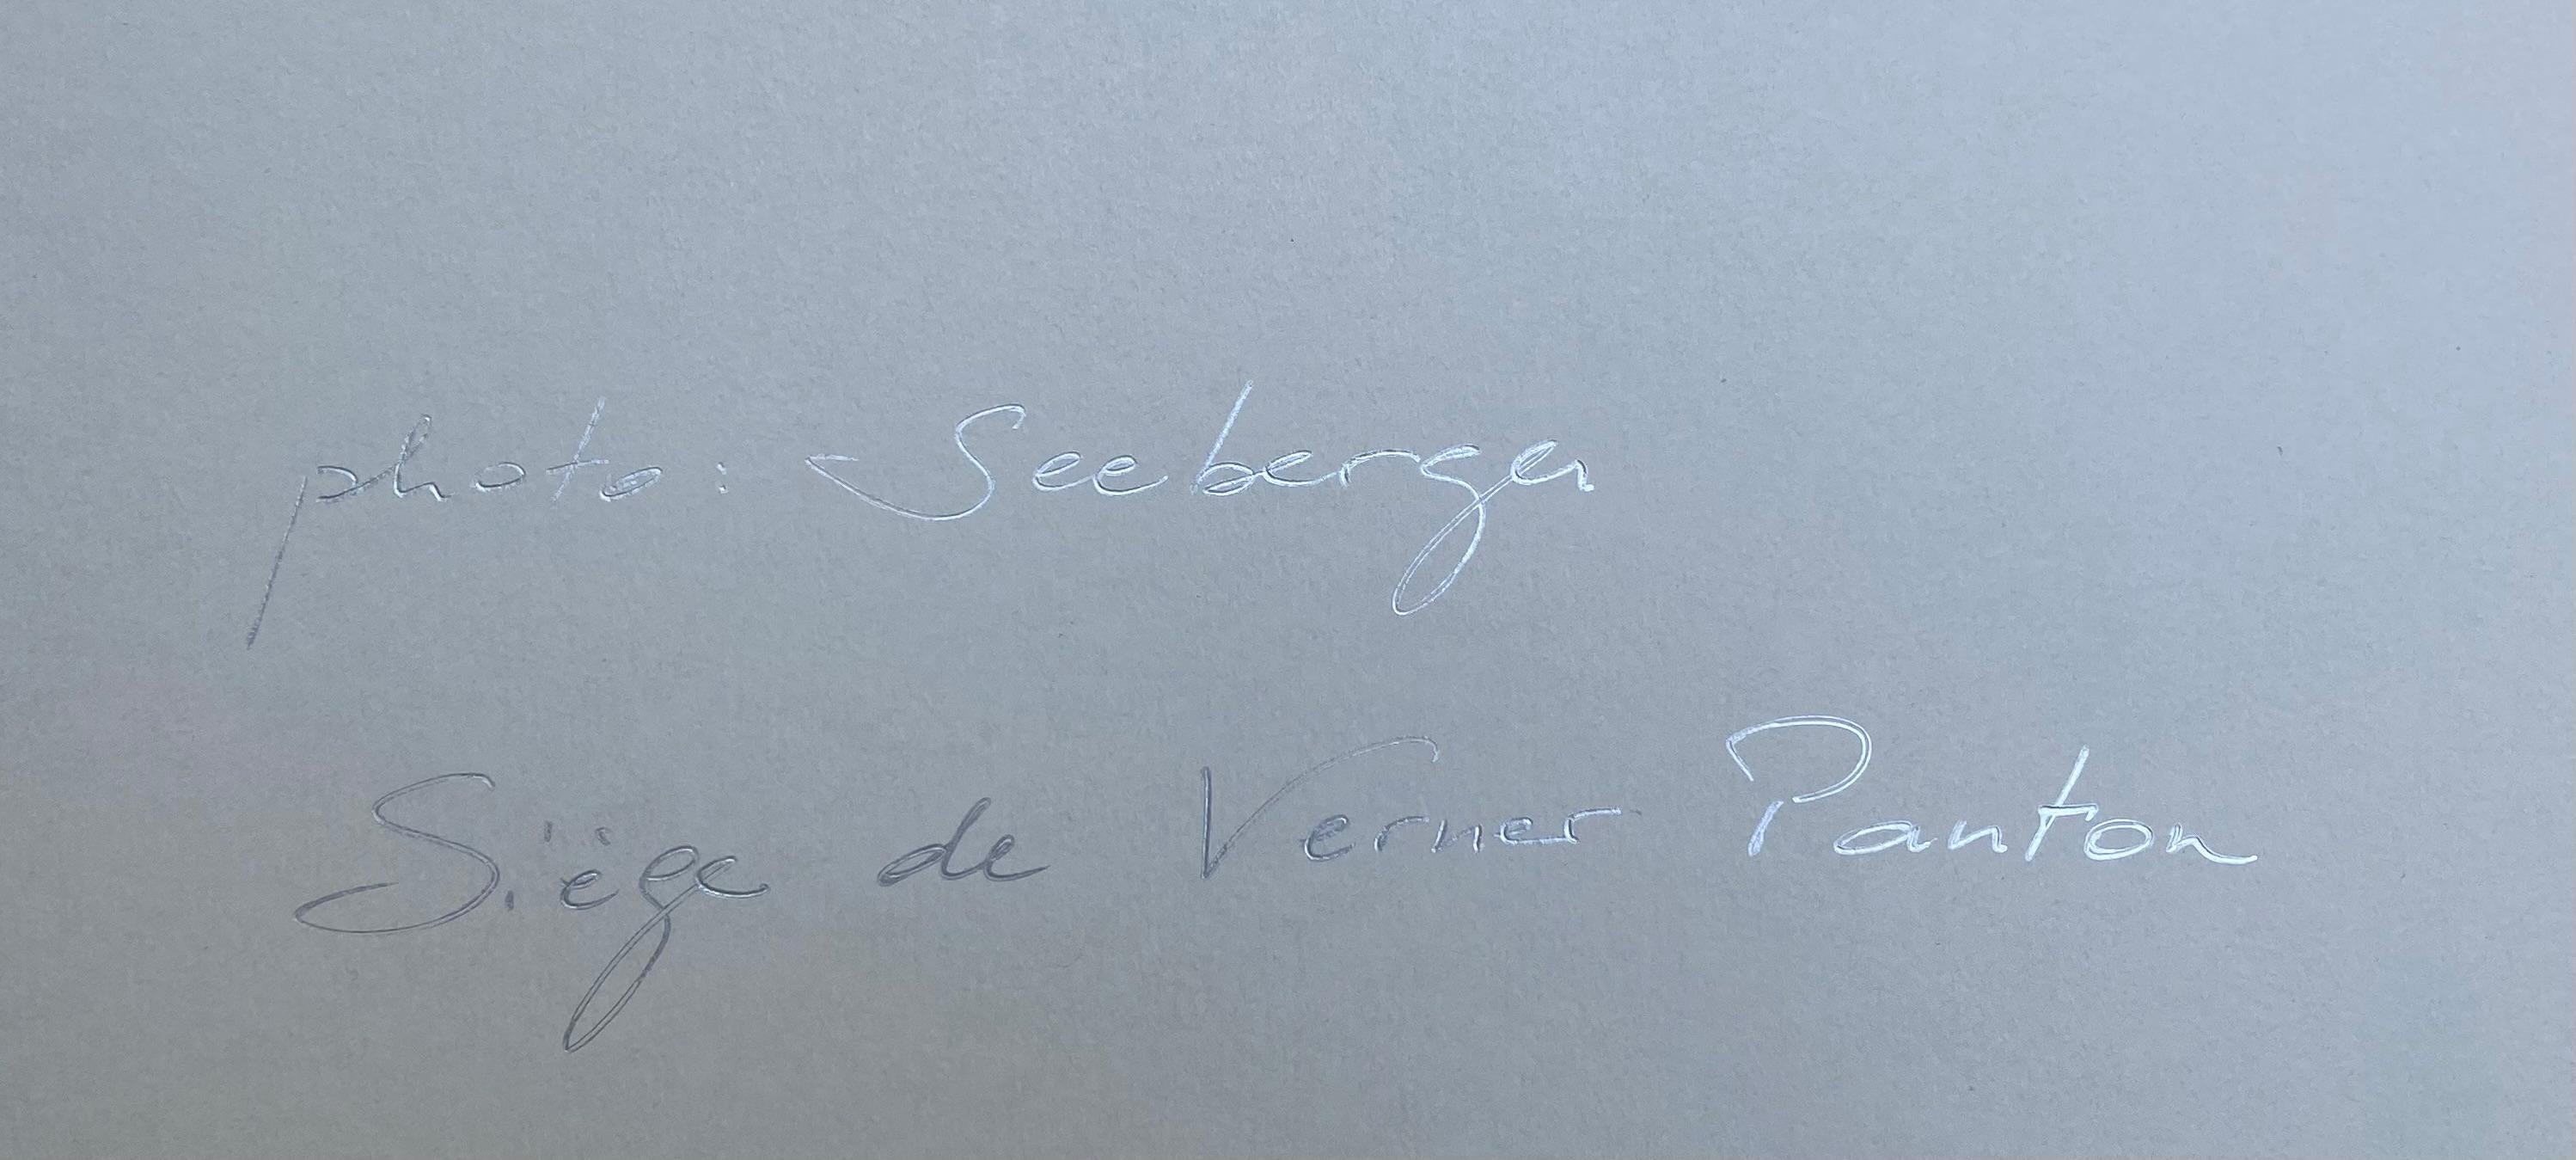 photo: Seeberger
Siège de Verner Panton